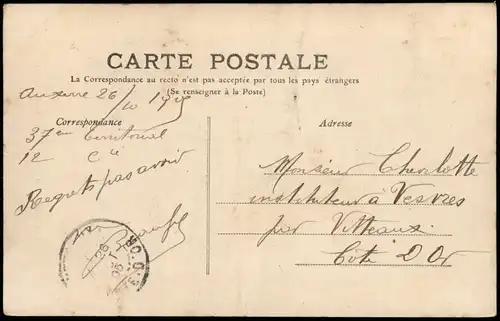 CARTE POSTALE
La Correspondance au recto n'est pas acceptée par tous les pays étrangers
(Se renseigner à la Poste)
Auxerre 26/10 1905
Correspondance
Adresse
37em Territorial
12 Cie
Regrets pas avoir
Monsieur
instituteur à Vesvres
par Vitteaux
Côte D'Or